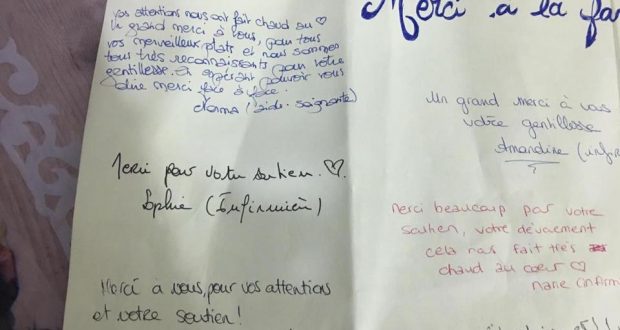 Merci à la fa
vos attentions nous ont fait chaud au ♡
Un grand merci à vous, pour tous
vos merveilleux plats et nous sommes
tous très reconnaissants pour votre
gentillesse. En espérant pouvoir vous
dire merci face à face.
(aide-soignante)
Merci pour votre soutien ♡.
Sophie (Infirmière)
Merci à vous, pour vos attentions
et votre soutien!
Un grand merci à vos
votre gentillesse
Amandine (infir
Merci beaucoup par votre
soutien, votre dévouement
cela nas fait très
chaud au coeur ♡
Marie (infirm